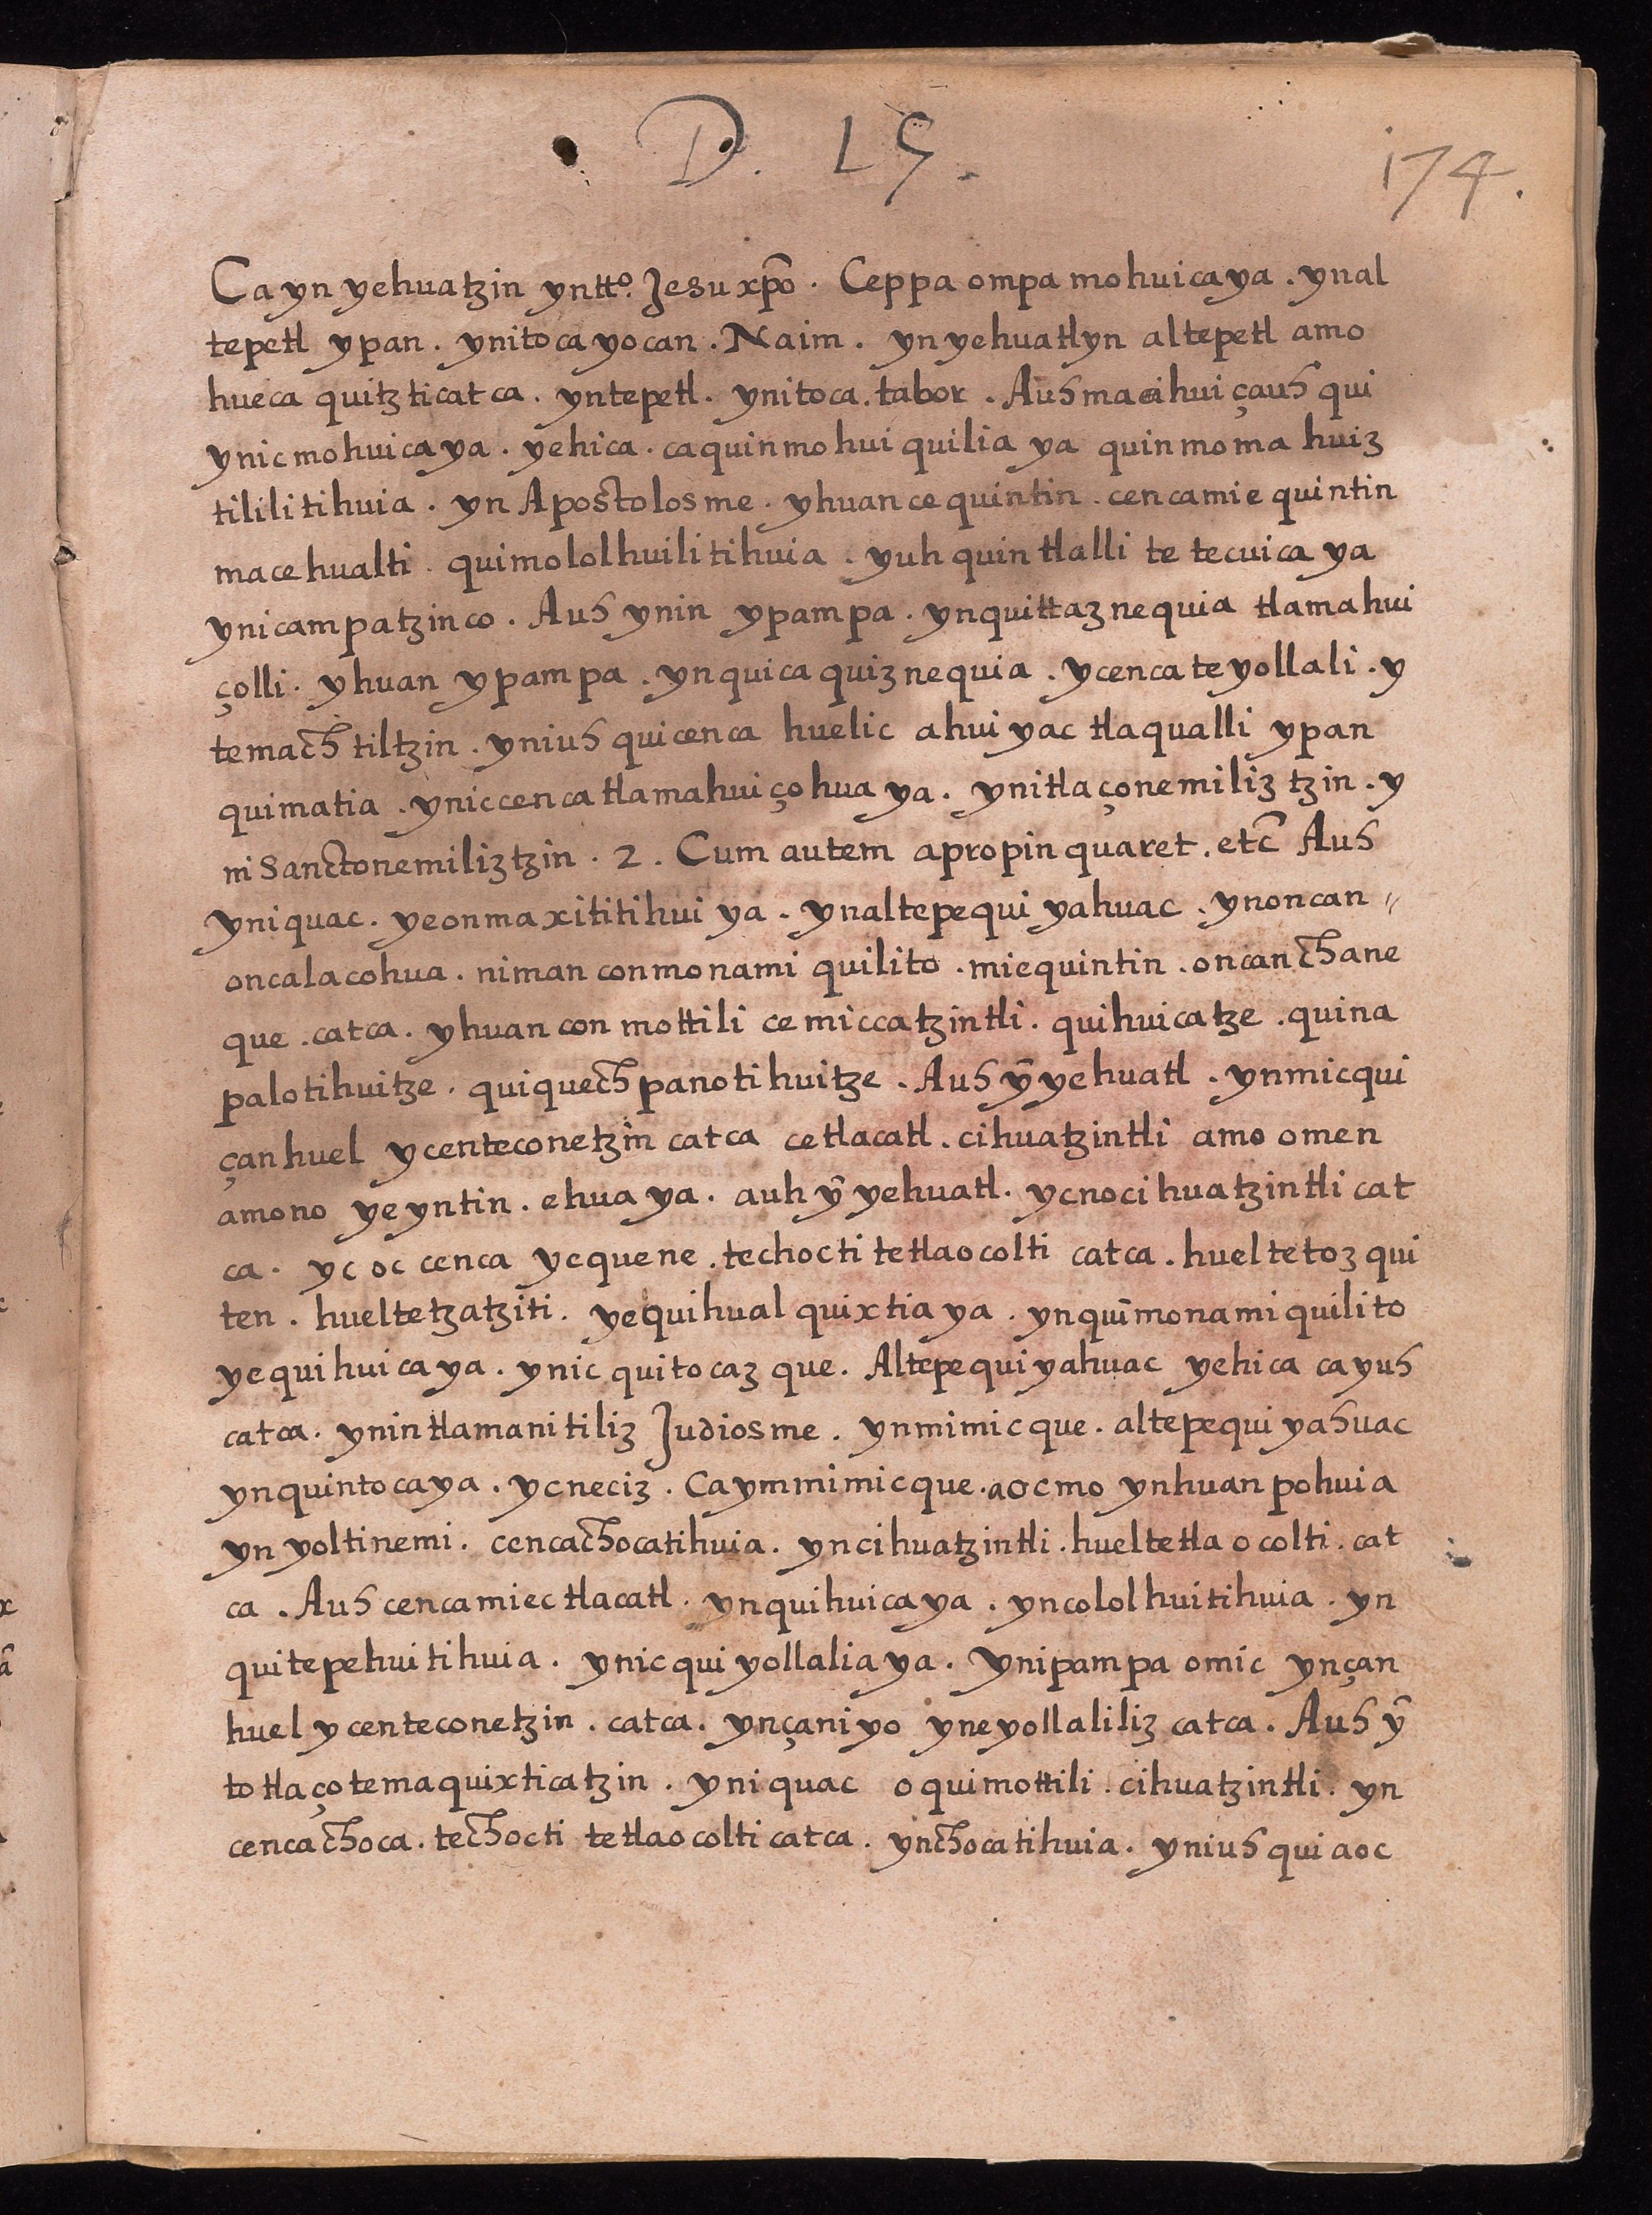 D. 15.
174.
Ca yn yehuatzin yntto. Jesu xpō. Ceppa ompa mohuicaya. ynal
tepetl ypan. ynitocayocan. Naim. yn yehuatlyn altepetl amo
hueca quitzticatca. yntepetl. ynitoca. tabor. Auh macihui çauh qui
ynic mohuicaya. yehica. caquinmohuiquilia ya quinmomahuiz
tililitihuia. yn Apostolosme. yhuancequintin. cencamiequintin
macehualti. quimololhuilitihuia. yuhquin tlalli tetecuicaya
ynicampatzinco. Auh ynin ypampa. ynquittaznequia tlamahui
çolli. yhuan ypampa. ynquicaquiznequia. ycencateyollali. y
temachtiltzin. yniuhquicenca huelic ahuiyac tlaqualli ypan
quimatia. yniccencatlamahuiçohuaya. ynitlaçonemiliztzin. y
ni Sanctonemiliztzin. 2. Cum autem apropinquaret. etc̄ Auh
yniquac. yeonmaxititihuiya. ynaltepequiyahuac. ynoncan〃
oncalacohua. niman conmonamiquilito. miequintin. oncanchane
que. catca. yhuan conmottili ce miccatzintli. quihuicatze. quina
palotihuitze. quiquechpanotihuitze. Auh ȳ yehuatl. ynmicqui
çanhuel ycenteconetzin catca cetlacatl. cihuatzintli amo omen
amono yeyntin. ehuaya. auh ȳ yehuatl. ycnocihuatzintli cat
ca. yc oc cenca yequene. techocti tetlaocolti catca. hueltetozqui
ten. hueltetzatziti. yequihualquixtiaya. ynquīmonamiquilito
yequihuicaya. ynic quitocazque. Altepequiyahuac yehica cayuh
catca. ynintlamanitiliz Judiosme. ynmimicque. altepequiyahuac
ynquintocaya. ycneciz. Caymmimicque. aocmo ynhuanpohuia
yn yoltinemi. cencachocatihuia. yncihuatzintli. hueltetlaocolti. cat
ca. Auh cencamiec tlacatl. ynquihuicaya. yncololhuitihuia. yn
quitepehuitihuia. ynicquiyollaliaya. ynipampa omic ynçan
huel ycenteconetzin. catca. ynçaniyo yneyollaliliz catca. Auh ȳ
totlaçotemaquixticatzin. yniquac oquimottili. cihuatzintli. yn
cencachoca. techocti tetlaocolti catca. ynchocatihuia. yniuhqui aoc